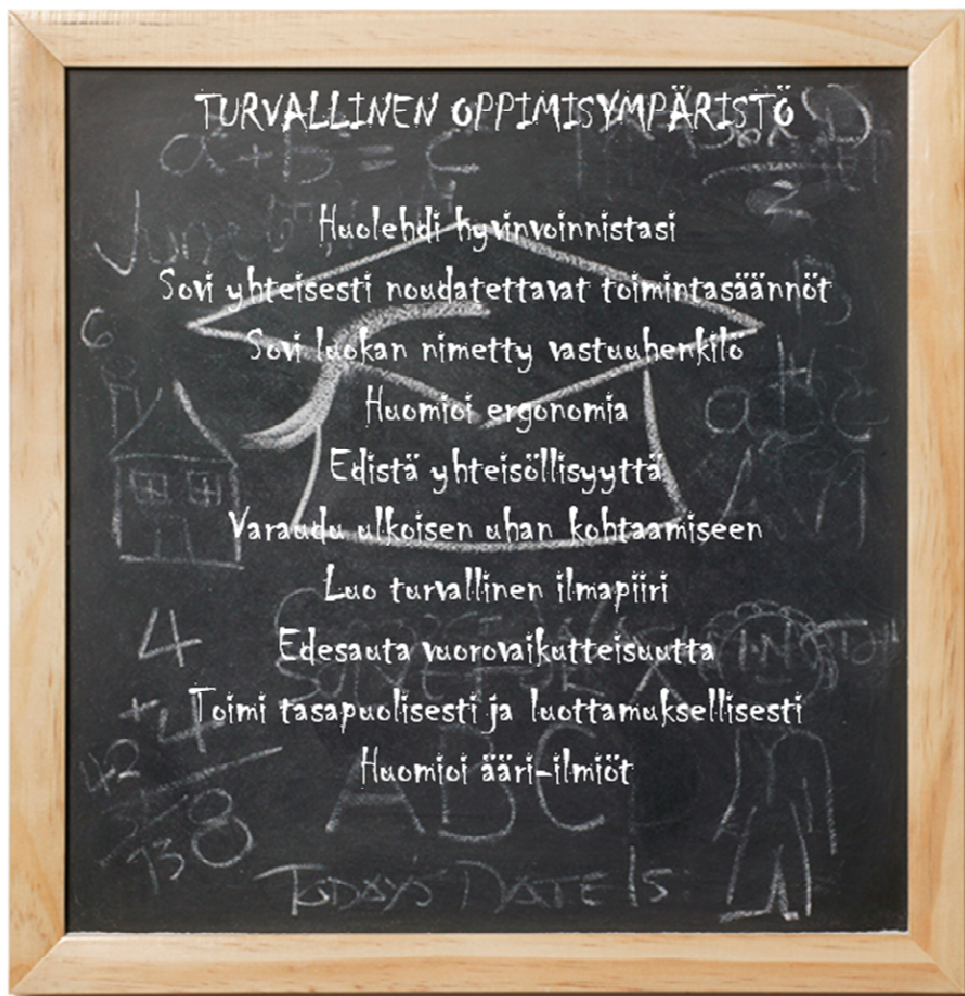 TURVALLINEN OPPIMISYMPÄRISTÖ
Huolehdi hyvinvoinnistasi
Sovi yhteisesti noudatettavat toimintasäännöt
Sovi luokan nimetty vastuuhenkilö
Huomioi ergonomia
Edistä yhteisöllisyyttä
Varaudu ulkoisen uhan kohtaamiseen
Luo turvallinen ilmapiiri
Edesauta vuorovaikutteisuutta
Toimi tasapuolisesti ja luottamuksellisesti
Huomioi ääri-ilmiöt
a + b = c
6
4
+4
42
138
ABC
TODAY'S DATE IS: